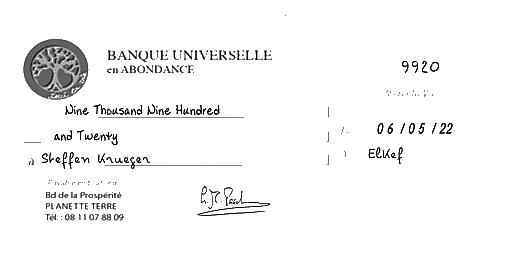 BANQUE UNIVERSELLE
en ABONDANCE
9920
Nine Thousand Nine Hundred
and Twenty
06/05/22
à Steffen Krueger
ElKef
Bd de la Prospérité
PLANETTE TERRE
Tél. : 08 11 07 88 09